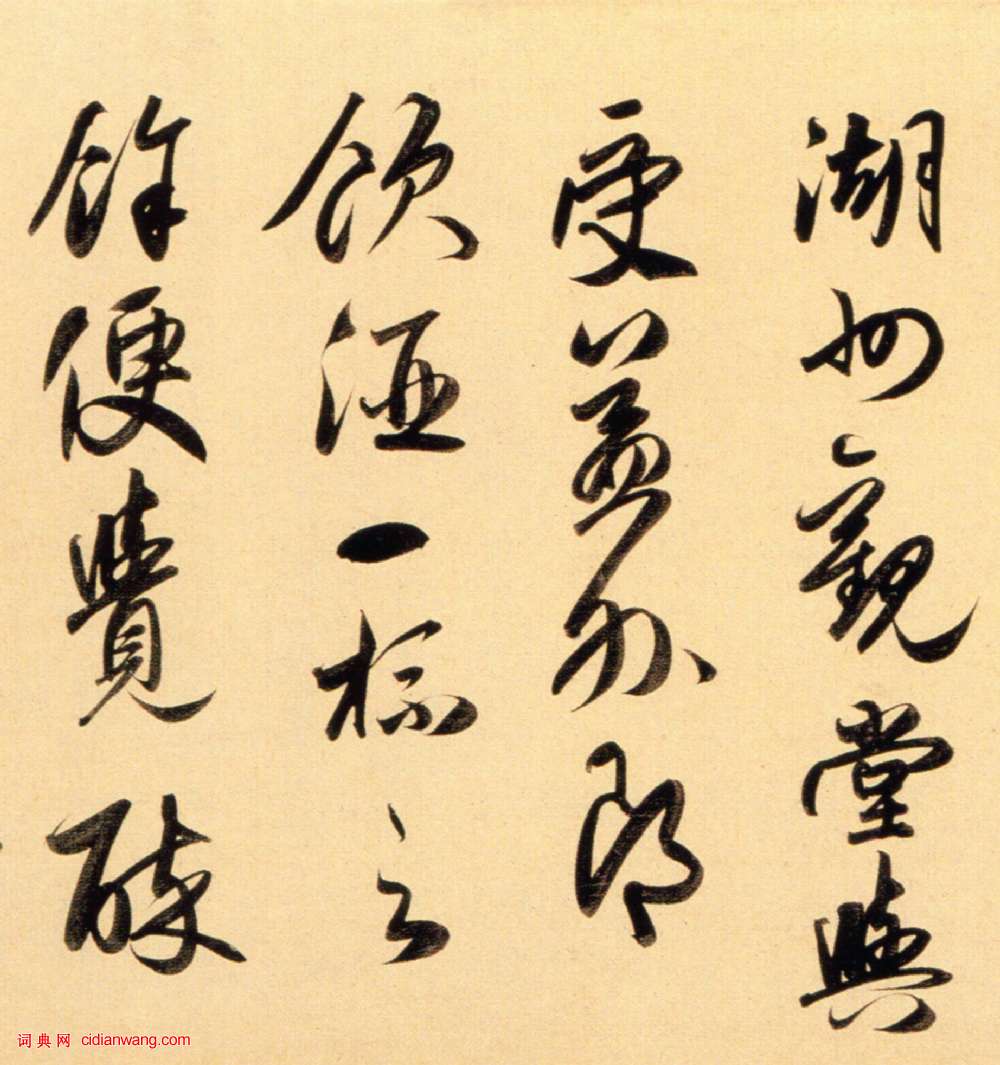 湖州觀堂與
受益外郎
飲酒一杯之
餘便覺醉
词典网 cidianwang.com